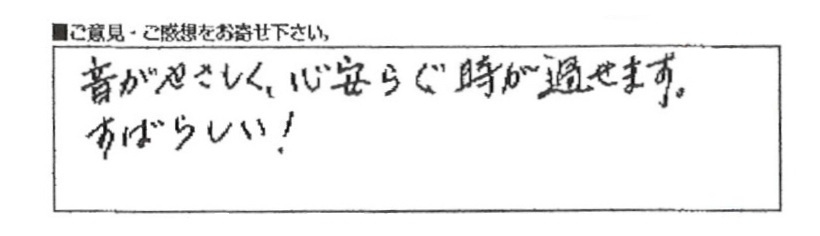 ■ご意見・ご感想をお寄せ下さい。
音がやさしく、心安らぐ時が過せます。
すばらしい！